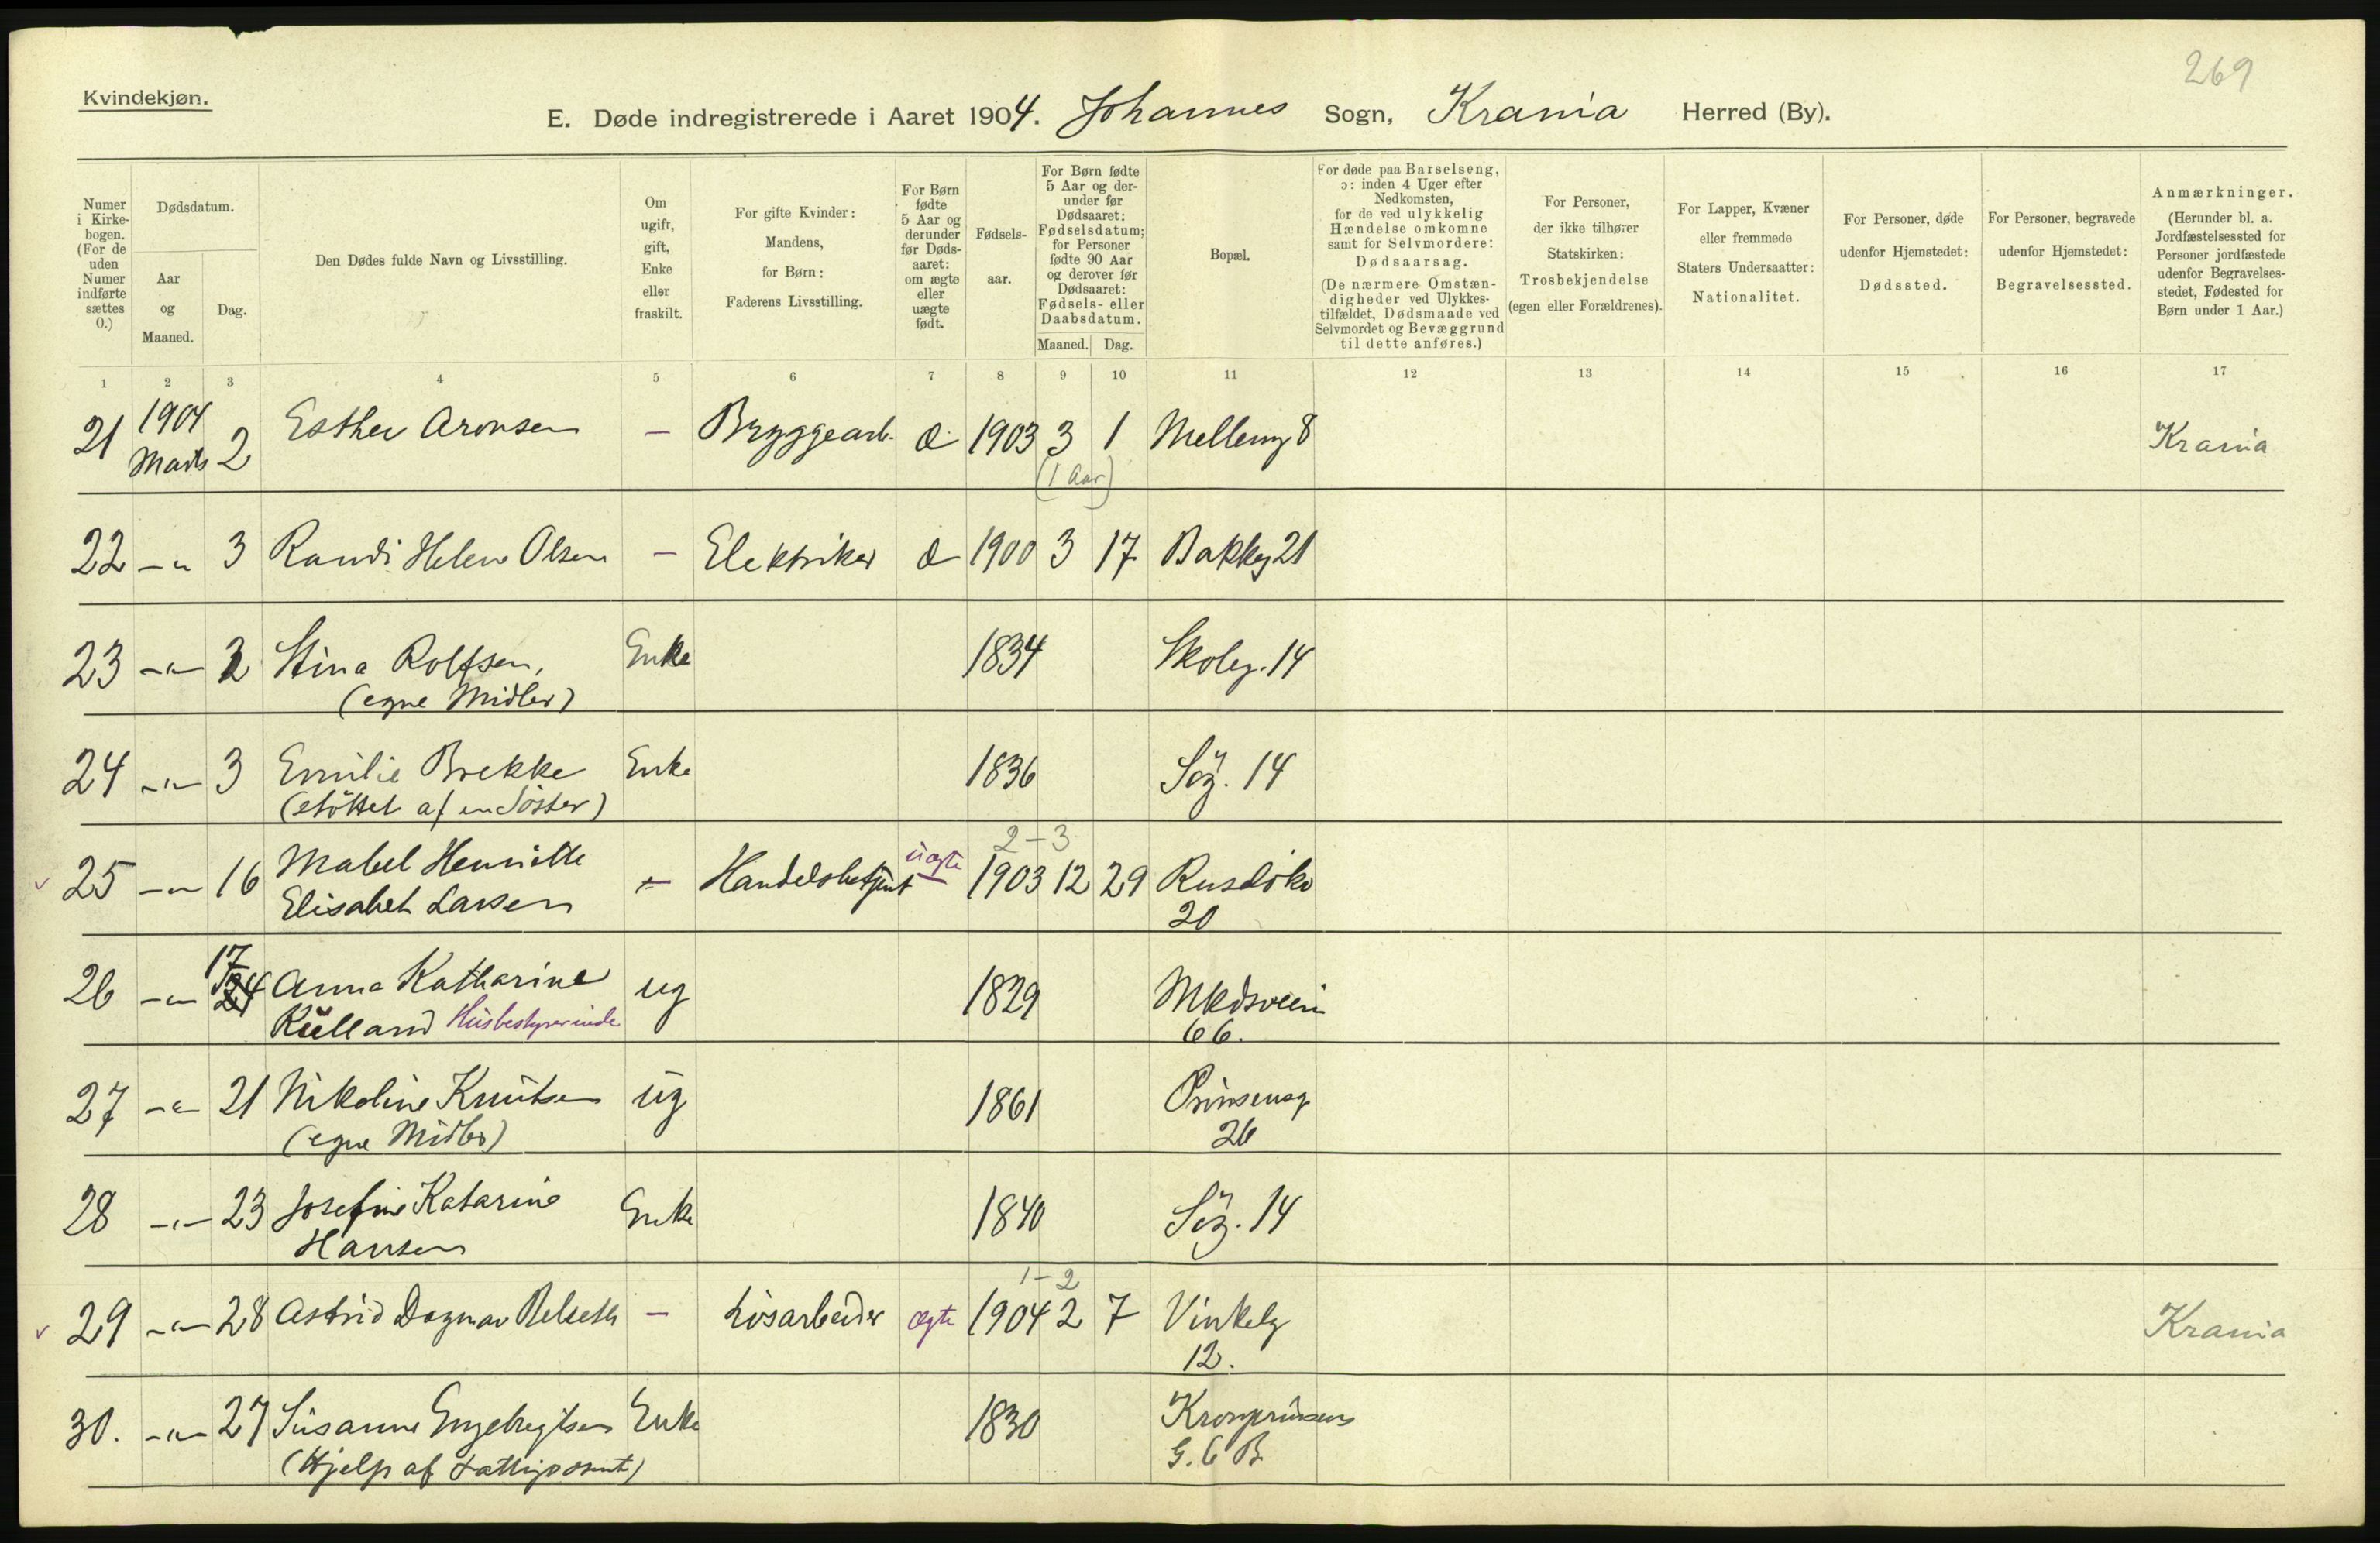 269
Kvindekjøn.
E. Døde indregistrerede i Aaret 1904. Johannes Sogn, Krania Herred (By).
Numer i Kirke-bogen. (For de uden Numer indførte sættes 0.)
Dødsdatum.
Aar og Maaned.
Dag.
Den Dødes fulde Navn og Livsstilling.
Om ugift, gift, Enke eller fraskilt.
For gifte Kvinder: Mandens, for Børn: Faderens Livsstilling.
For Børn fødte 5 Aar og derunder før Døds-aaret: om ægte eller uægte født.
Fødsels-aar.
For Børn fødte 5 Aar og der-under før Dødsaaret: Fødselsdatum; for Personer fødte 90 Aar og derover før Dødsaaret: Fødsels- eller Daabsdatum.
Maaned. Dag.
Bopæl.
For døde paa Barselseng, ɔ: inden 4 Uger efter Nedkomsten, for de ved ulykkelig Hændelse omkomne samt for Selvmordere: Dødsaarsag. (De nærmere Omstæn-digheder ved Ulykkes-tilfældet, Dødsmaade ved Selvmordet og Bevæggrund til dette anføres.)
For Personer, der ikke tilhører Statskirken: Trosbekjendelse (egen eller Forældrenes).
For Lapper, Kvæner eller fremmede Staters Undersaatter: Nationalitet.
For Personer, døde udenfor Hjemstedet: Dødssted.
For Personer, begravede udenfor Hjemstedet: Begravelsessted.
Anmærkninger. (Herunder bl. a. Jordfæstelsessted for Personer jordfæstede udenfor Begravelses-stedet, Fødested for Børn under 1 Aar.)
1 2 3 4 5 6 7 8 9 10 11 12 13 14 15 16 17
21 1904 Marts 2 Esther Aronsen — Bryggearb. æ 1903 3 1 Melleng 8 Krania
(1 Aar)
22 -„- 3 Randi Helene Olsen — Elektriker æ 1900 3 17 Bakkeg 21
23 -„- 2 Stina Rolfsen, Enke 1834 Skoleg. 14
(egne Midler)
24 -„- 3 Emilie Brekke Enke 1836 Søg. 14
(støttet af en Søster)
2-3
25 -„- 16 Mabel Henriette — Handelsbetjent uægte 1903 12 29 Rusdløkv
Elisabet Larsen 20
17
26 -„- 24 Anna Katharine ug 1829
Kielland Husbestyrerinde 66.
27 -„- 21 Nikoline Knutsen ug 1861 Prinsensg
(egne Midler) 26
28 -„- 23 Josefine Katarine Enke 1840 Søg. 14
Hansen
1-2
29 -„- 28 Astrid Dagmar Belseth — Løsarbeider ægte 1904 2 7 Vinkelg Krania
12.
30. -„- 27 Susanne Engebregtsen Enke 1830 Kronprinsens
(Hjelp af Fattigvæsnet) G. 6 B